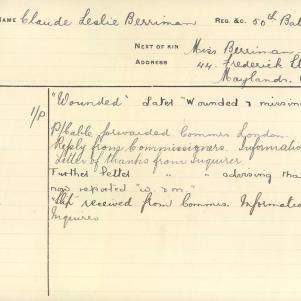 NAME Claude Leslie Berriman REG. &C. 50th Bat
NEXT OF KIN Miss Berriman
ADDRESS 44. Frederick St
Maylands.
1/P "Wounded" Later "Wounded & missing
P/Cable forwarded Commrs London.
Reply from Commissioners. Informatio
Letter of thanks from inquirer
Further letter " " advising tha
now reported "w. & m."
received from Commrs. Informatio
Inquires